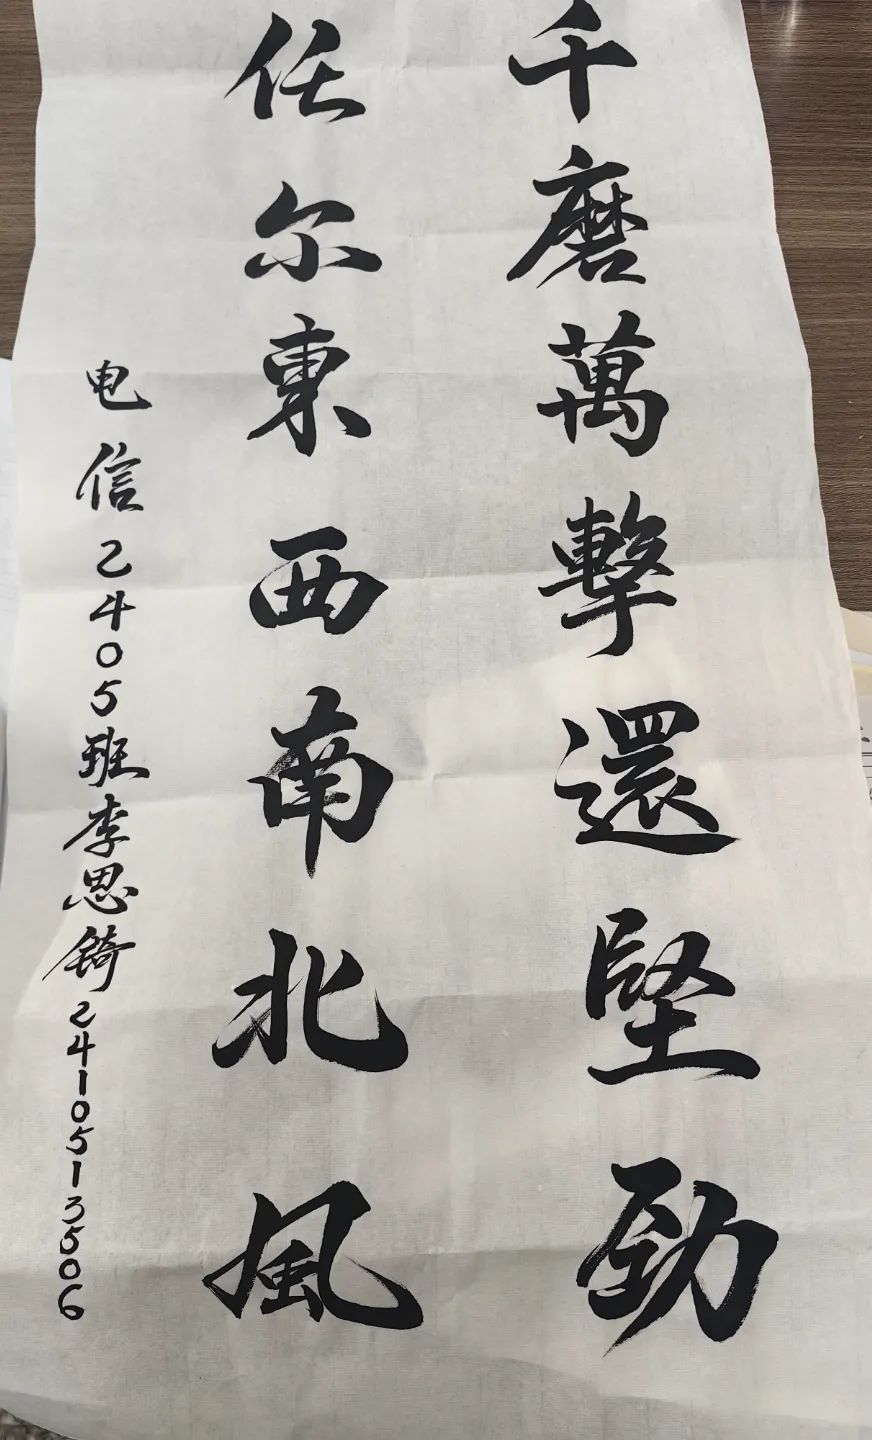 千磨萬擊還堅勁
任尔東西南北風
电信2405班李思锜2410513506